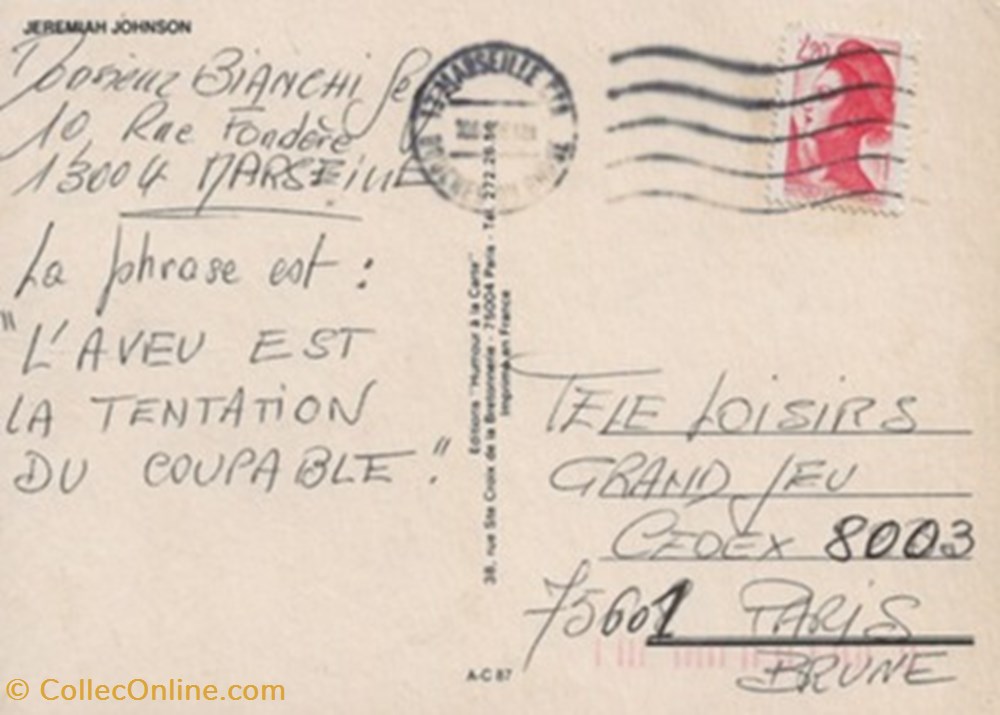 JEREMIAH JOHNSON
Monsieur BIANCHI Gé
10, Rue Fondère
13004 MARSEILLE
La phrase est :
"L'AVEU EST
LA TENTATION
DU COUPABLE."
13 MARSEILLE
BOUCHES DU RHONE
2,20
Editions "Humour à la Carte"
38, rue Ste Croix de la Bretonnerie - 75004 Paris - Tél. 272.26.
Imprimé en France
TELE LOISIRS
GRAND JEU
CEDEX 8003
75601 PARIS
BRUNE
A-C 87
© CollecOnline.com